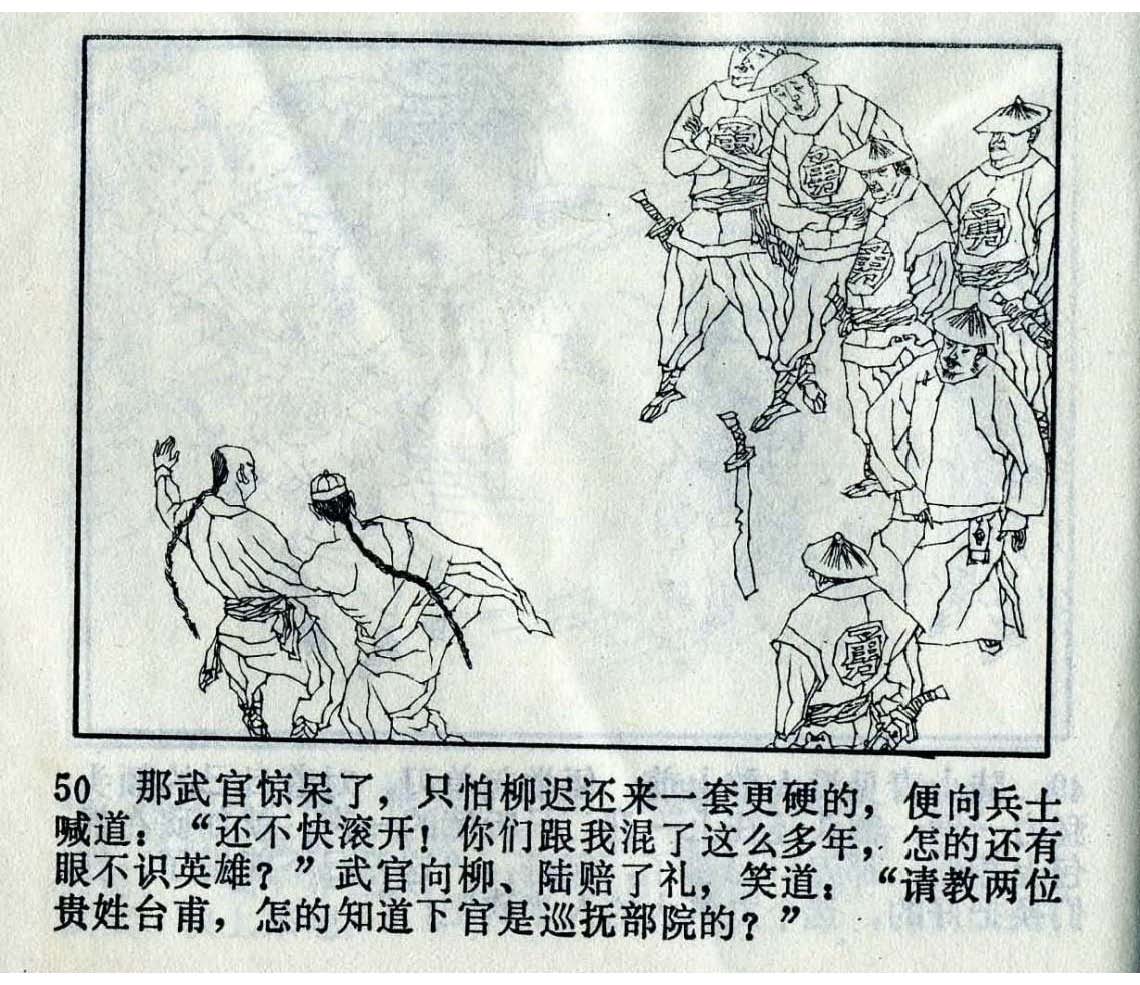 勇
勇
勇
勇
勇
50 那武官惊呆了，只怕柳迟还来一套更硬的，便向兵士
喊道：“还不快滚开！你们跟我混了这么多年，怎的还有
眼不识英雄？”武官向柳、陆赔了礼，笑道：“请教两位
贵姓台甫，怎的知道下官是巡抚部院的？”